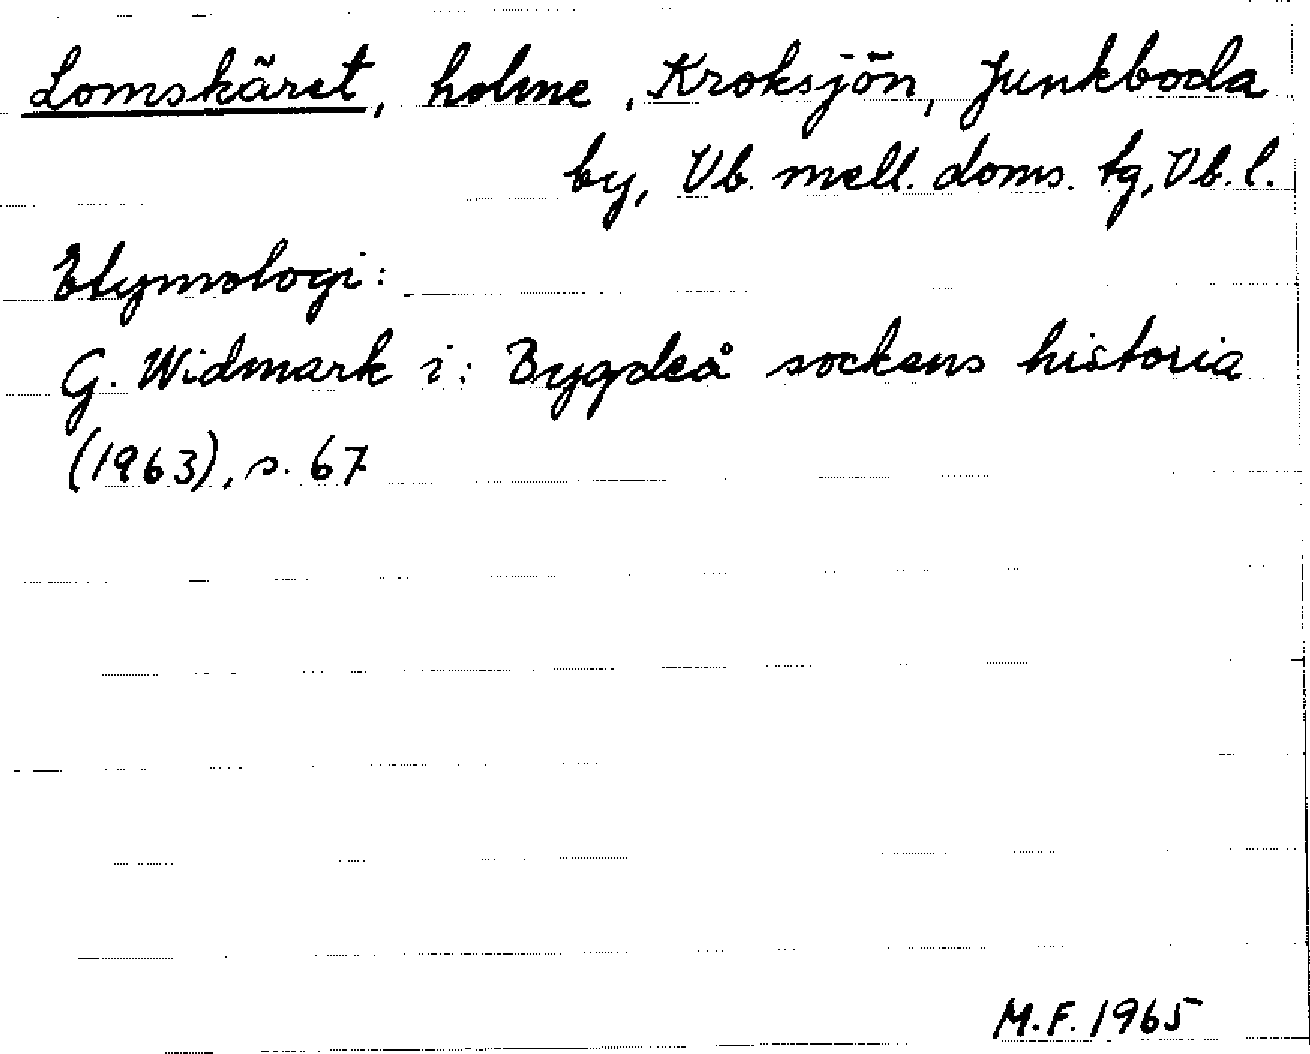 Lomskäret, holme, Kroksjön, Junkboda
by, Vb. mell. doms. tg, Vb. l.
Etymologi:
G. Widmark i: Bygdeå sockens historia
(1963), s. 67
M.F. 1965